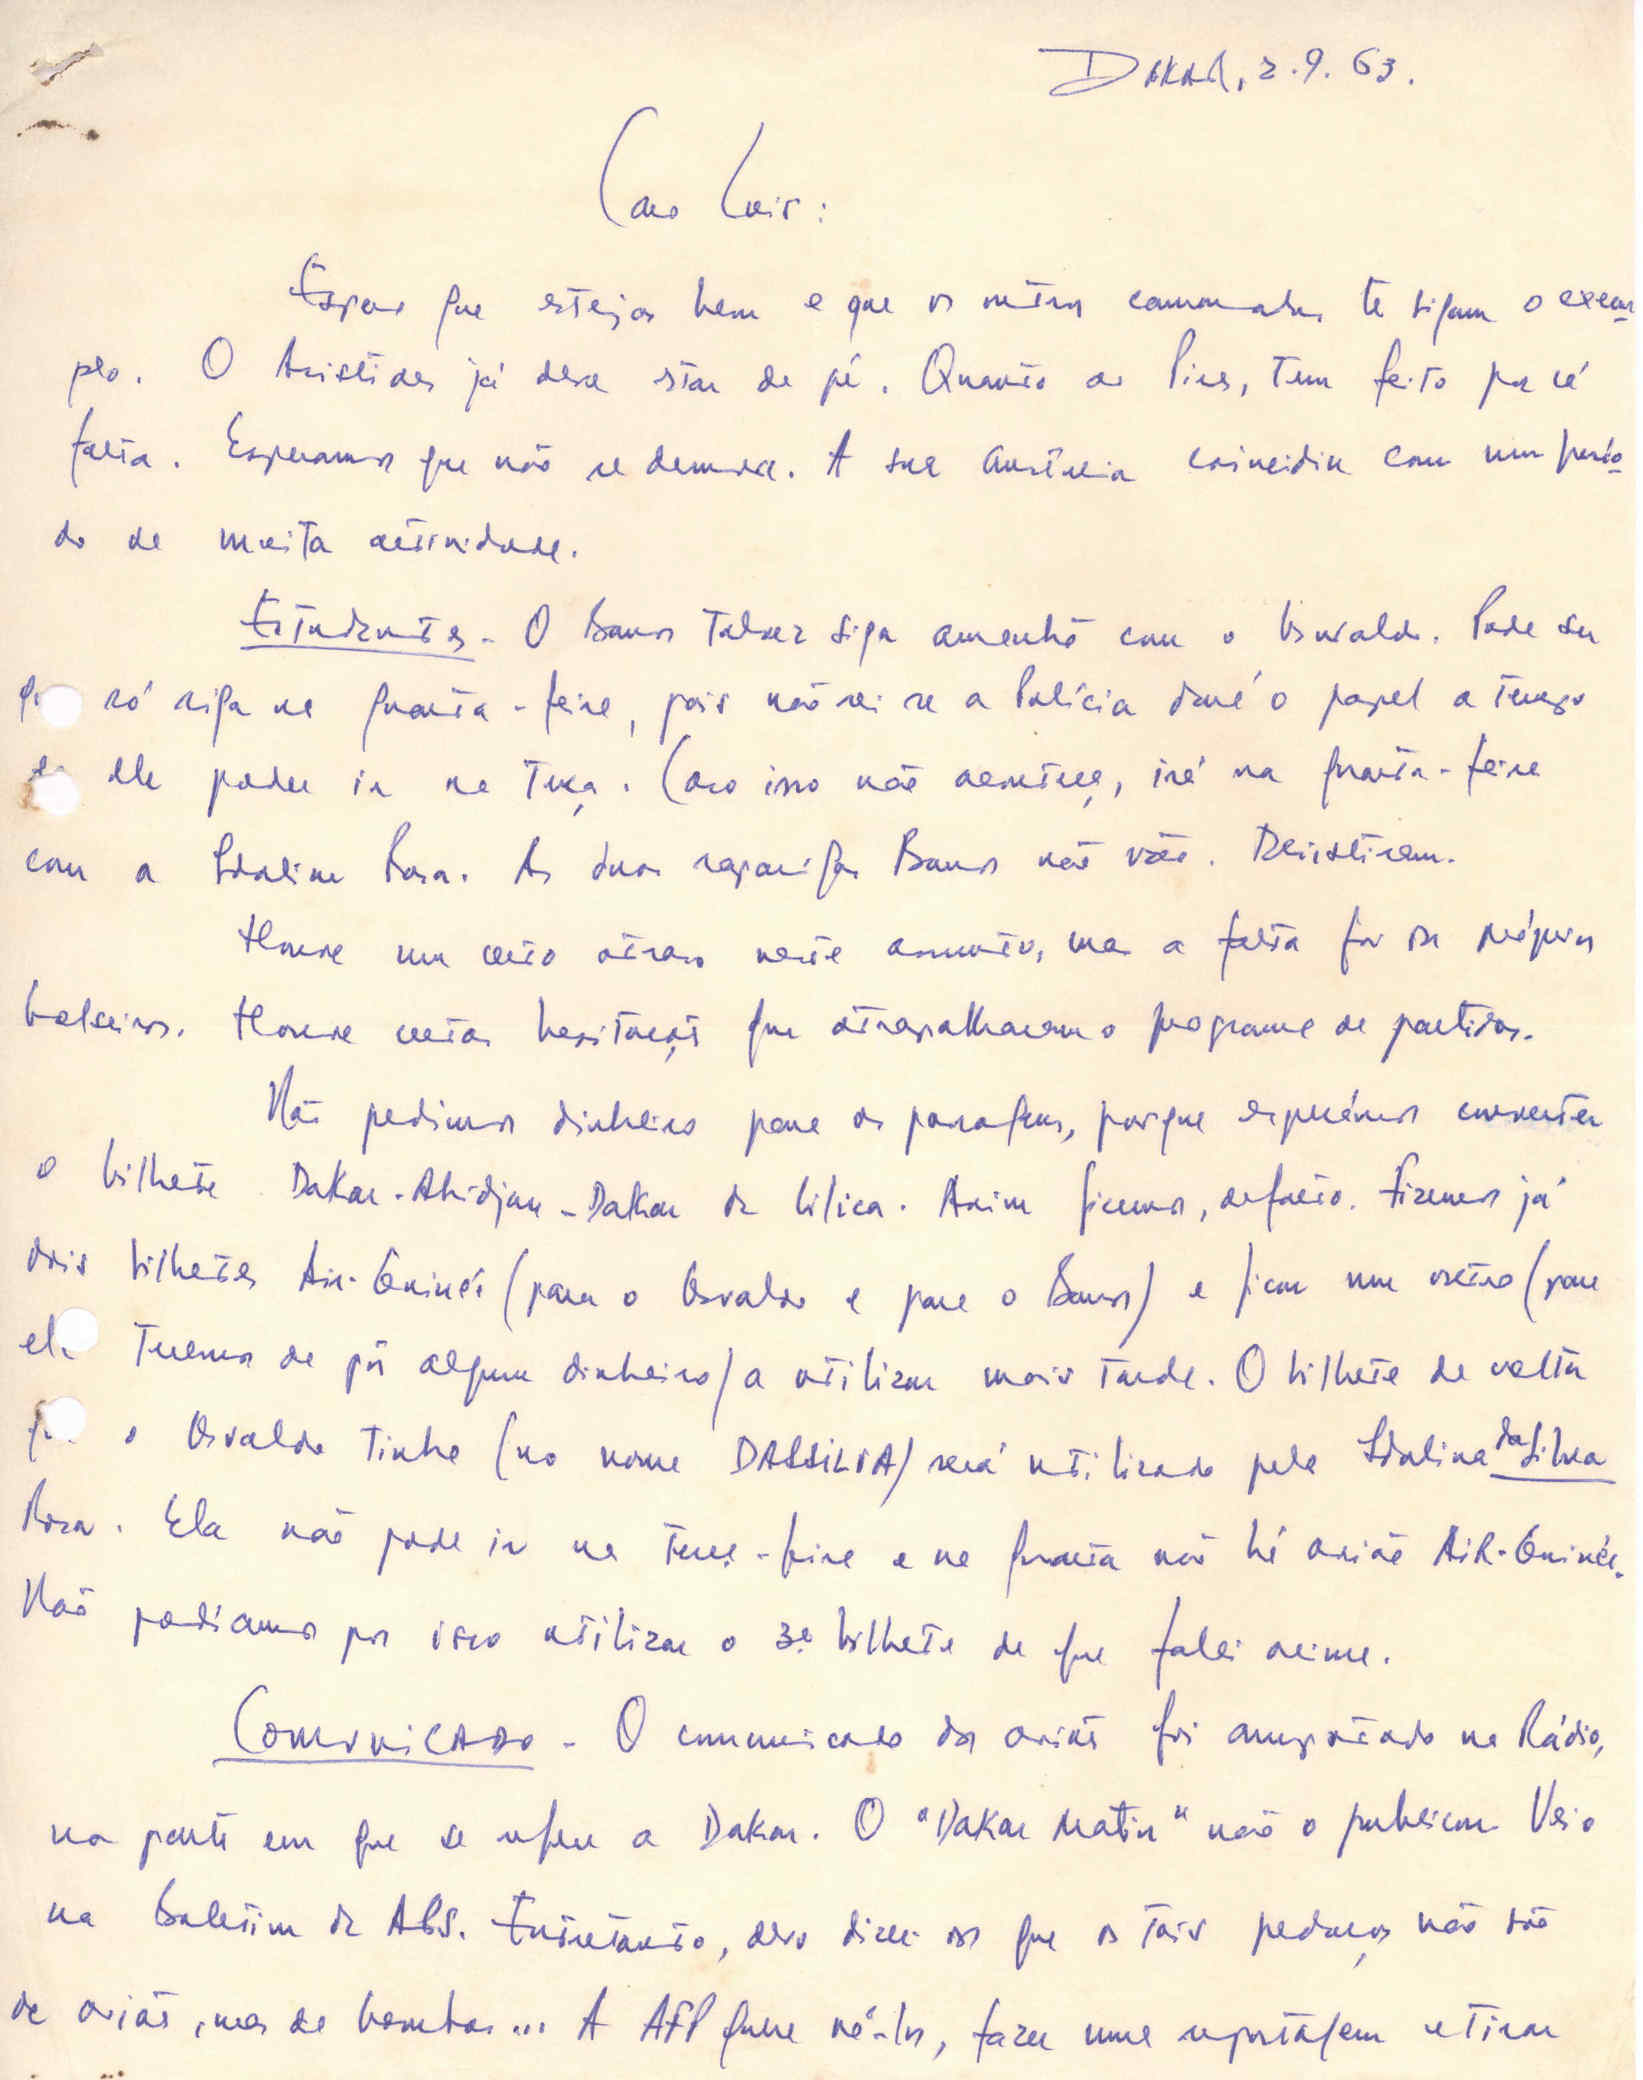 Dakar, 2.9.63.
Caro Luís:
Espero que estejas bem e que os outros camaradas te sigam o exem-
plo. O Aristides já deve estar de pé. Quanto ao Pires, tem feito por cá
falta. Esperamos que não se demore. A sua ausência coincidiu com um perío-
do de muita actividade.
Estudantes - O Barros talvez siga amanhã com o Osvaldo. Pode ser
que só siga na quarta-feira, pois não sei se a Polícia dará o papel a tempo
de ele poder ir na terça. Caso isso não aconteça, irá na quarta-feira
com a Idalina Rosa. As duas raparigas Barros não vão. Desistiram.
Houve um certo atraso neste assunto, mas a falta foi dos próprios
bolseiros. Houve certas hesitações que atrapalharam o programa de partidas.
Não pedimos dinheiro para as passagens, porque esperávamos converter
o bilhete Dakar-Abidjan-Dakar da Lilica. Assim fizemos, de facto. Fizemos já
dois bilhetes Air-Guinée (para o Osvaldo e para o Barros) e ficou um outro (para
ele teremos de pôr algum dinheiro) a utilizar mais tarde. O bilhete de volta
que o Osvaldo tinha (no nome DASSILVA) será utilizado pela Idalina da Silva
Rosa. Ela não pode ir na terça-feira e na quarta não há avião AIR-Guinée.
Não podíamos por isso utilizar o 3º bilhete de que falei acima.
Comunicado - O comunicado dos aviões foi aproveitado na Rádio,
na parte em que se refere a Dakar. O "Dakar Matin" não o publicou. Veio
no Boletim da APS. Entretanto, devo dizer-vos que os tais pedaços não são
de aviões, mas de bombas... A AFP quer vê-los, fazer uma reportagem e tirar